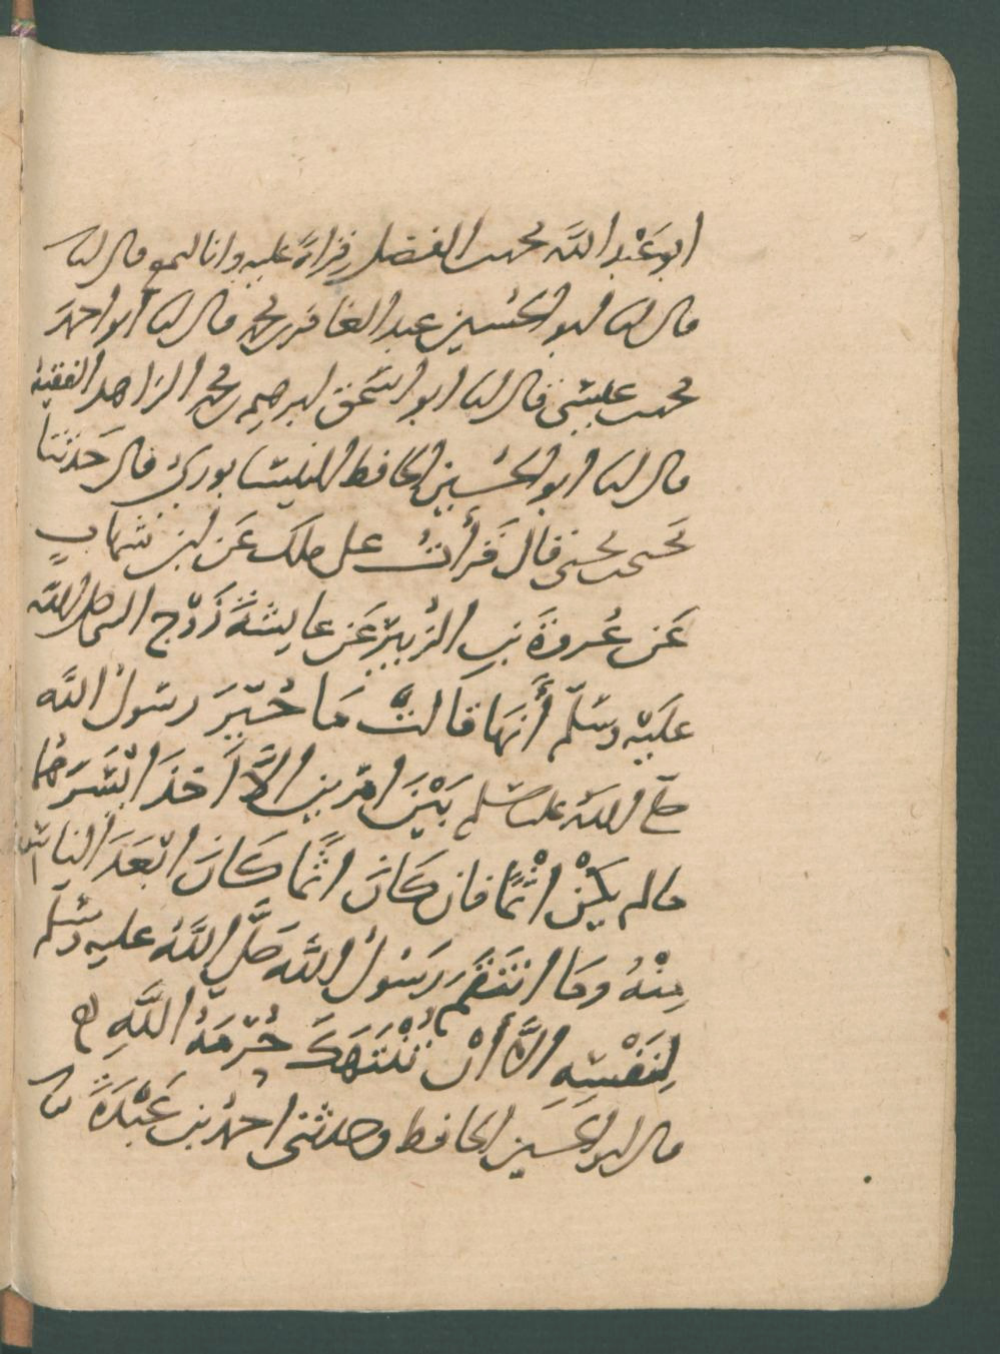 ابو عَبْد اللَّه محمد بن الفضل قِراةً عليه وانا اسمع قال انبا
قال انبا ابو الحُسين عبد الغافر بن محمد قال انبا ابو احمدَ
محمد بن عيسى قال انبا ابو اسحق ابرهيم بن محمد الزاهد الفقيه
قال انبا ابو الحُسين الحافظ النيسابوري قال حَدثنا
يحيى بن يحيى قال قَرأتُ على ملك عَن ابن شهابٍ
عَن عُروةَ بنِ الزُبيرِ عَن عايشةَ زَوْج النبي صلى اللَّه
عليْه وسَلّم أنهَا قالتْ مَا خُيّرَ رسَولُ اللَّه
صلى اللَّه عليه وسلم بَيْنَ امْرين الَّا أَخذَ ايْسَرَهُمَا
مالم يَكُنْ اثْمًا فان كَانَ اثمًا كَانَ ابْعَدَ الناسِ
مِنْهُ ومَا انتَقَمَ رسَولُ اللَّه صَلَّى اللَّهُ عليه وسَلّم
لِنَفْسِهِ الَّا أنْ تُنْتَهَكَ حُرْمَةُ اللَّهِ
قال ابو الحسَين الحافظ وحدثنى احمدُ بن عَبْدَةَ نا